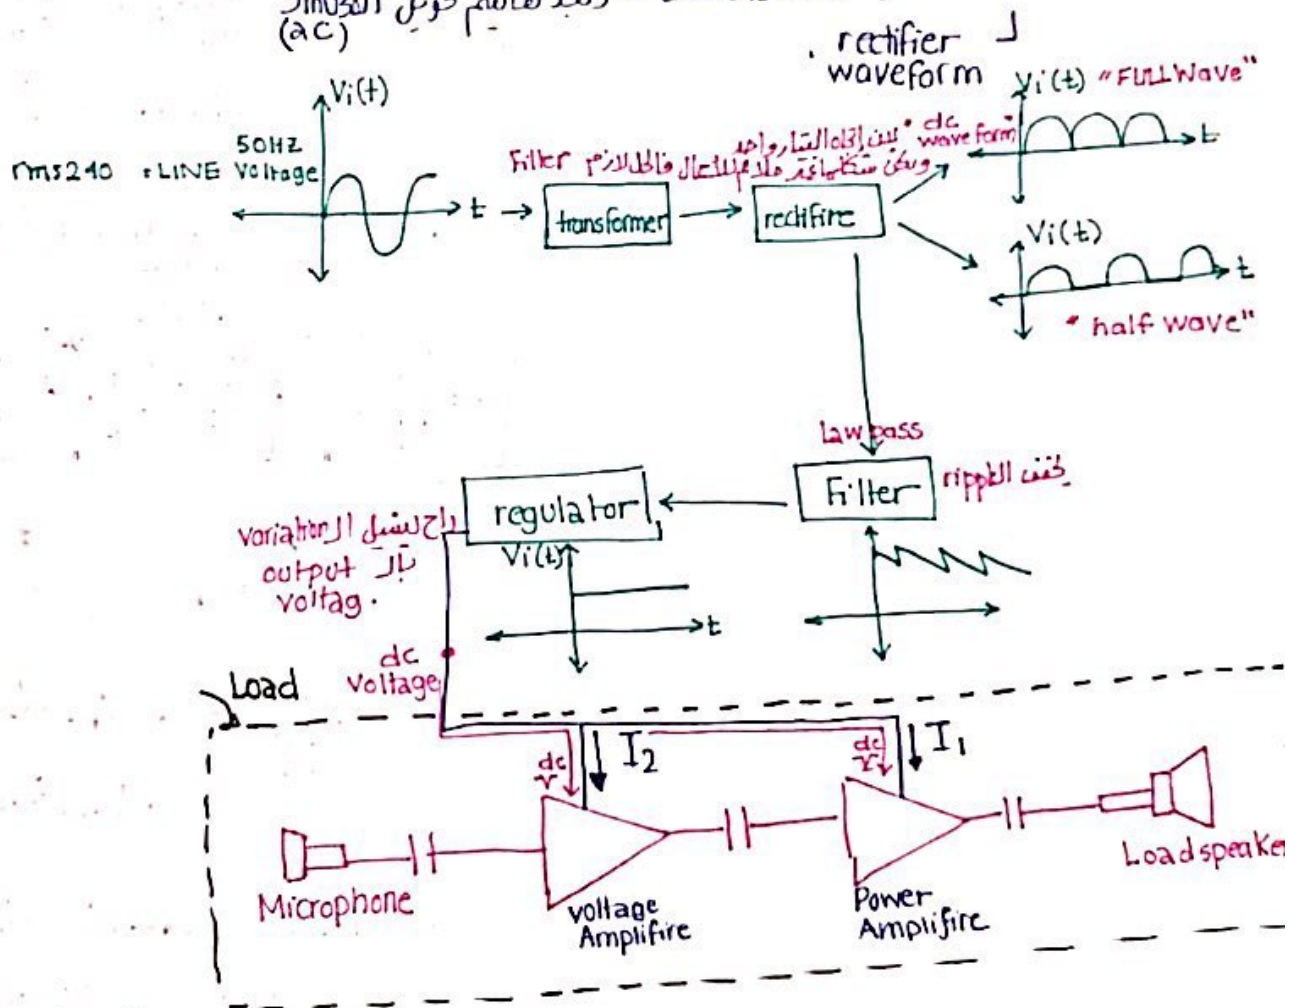 (ac)
rectifier
waveform
Vi(t) "FULL Wave"
t
Vi(t)
50HZ
rms240 : LINE Voltage
t
Filter
dc
wave form
transformer
rectifire
Vi(t)
t
" half wave"
law pass
Filter
ripple
regulator
راح يشيل ال variation
output
voltag.
Vi(t)
t
dc
Voltage
Load
dc
v
I2
dc
v
I1
Microphone
voltage
Amplifire
Power
Amplifire
Loadspeake